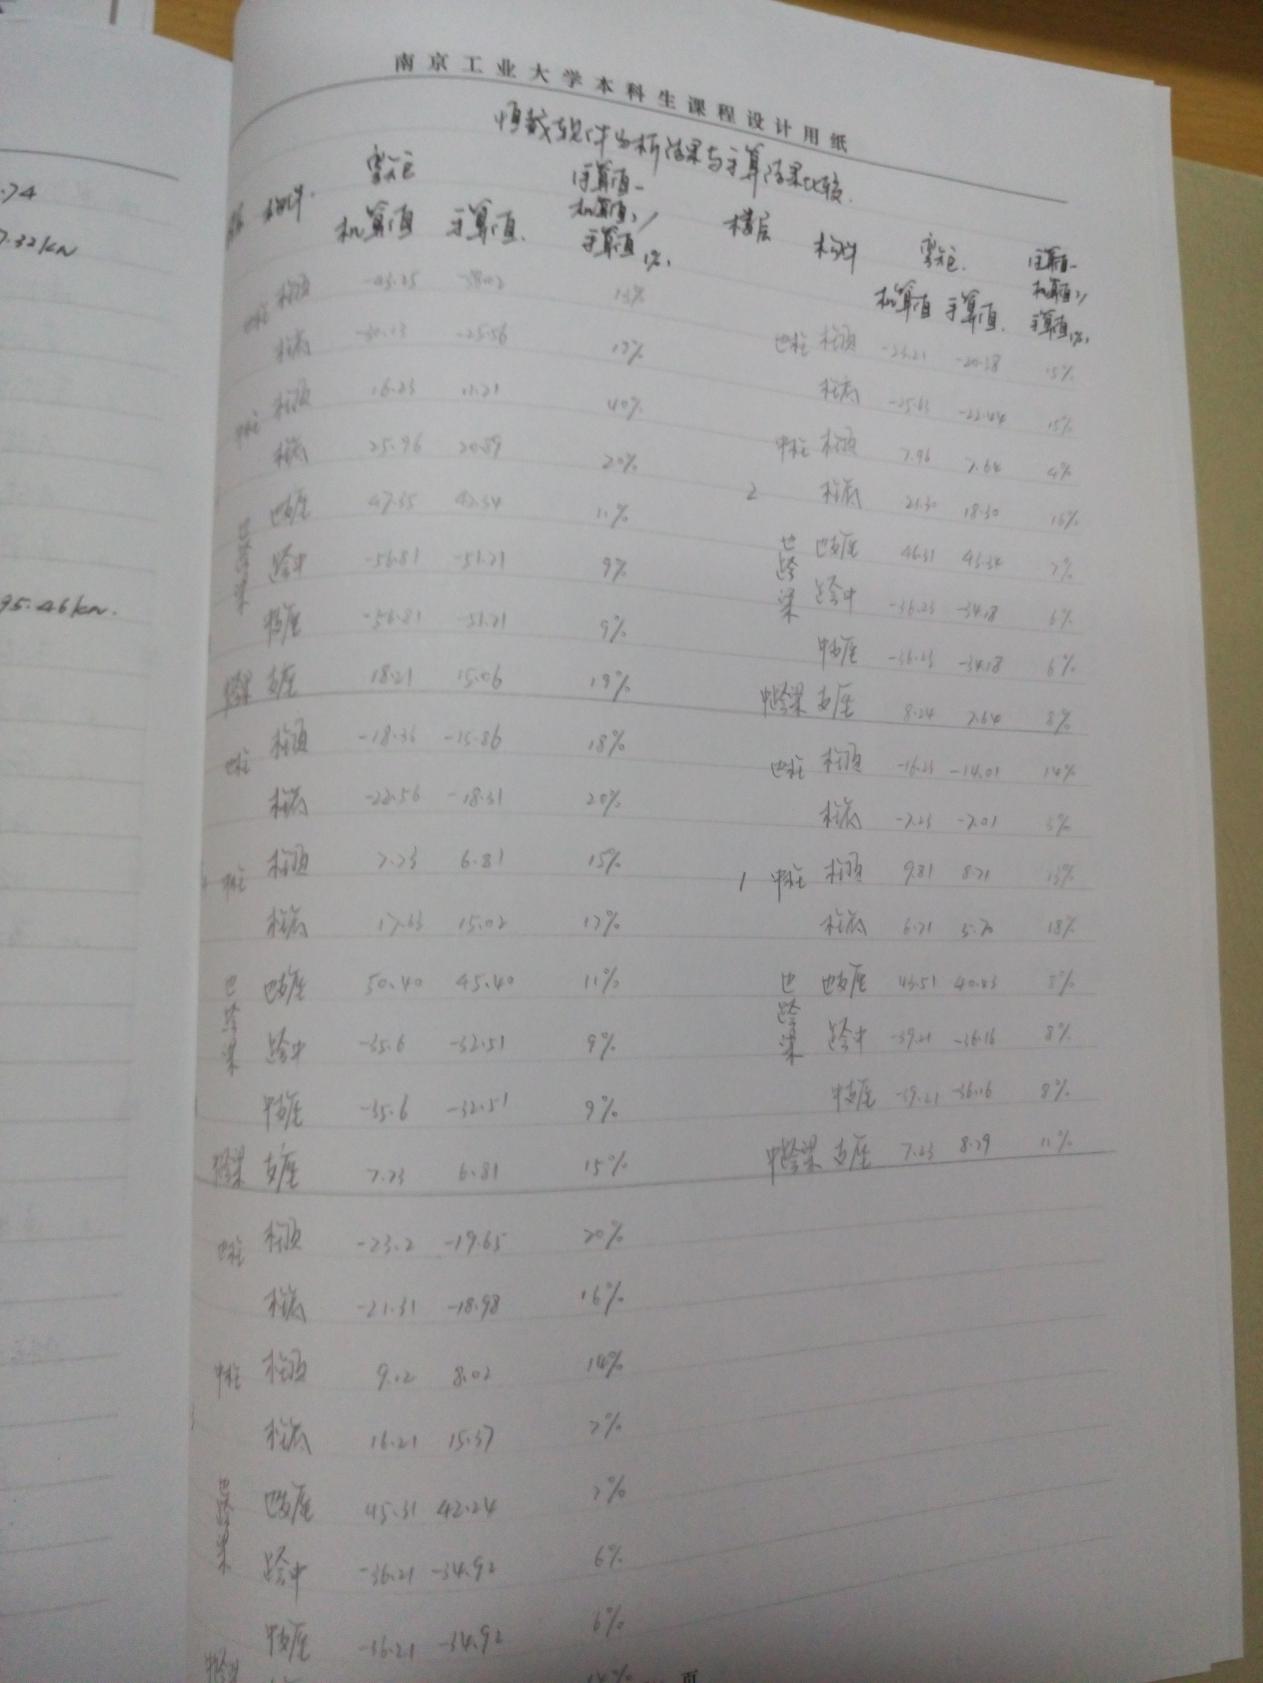 南京工业大学本科生课程设计用纸
恒载软件分析结果与手算结果比较.
构件. 弯矩 (手算值-
机算值 手算值. 机算值)/
手算值 1%.
边柱 柱顶 -38.02 13%
柱底 -30.13 -25.56 17%
中柱 柱顶 16.23 11.21 40%
柱底 25.96 20.89 20%
边跨梁 边支座 47.35 42.34 11%
跨中 -56.81 -51.21 9%
中支座 -56.81 -51.21 9%
中跨梁 支座 18.21 15.06 19%
边柱 柱顶 -18.36 -15.86 18%
柱底 -22.56 -18.31 20%
中柱 柱顶 7.73 6.81 15%
柱底 17.63 15.02 17%
边跨梁 边支座 50.40 45.40 11%
跨中 -35.6 -32.51 9%
中支座 -35.6 -32.51 9%
中跨梁 支座 7.73 6.81 15%
边柱 柱顶 -23.2 -19.65 20%
柱底 -21.31 -18.98 16%
中柱 柱顶 9.12 8.02 14%
柱底 16.21 15.37 7%
边跨梁 边支座 45.31 42.24 7%
跨中 -36.21 -34.92 6%
中支座 -36.21 -34.92 6%
中跨梁 14%
楼层 构件 弯矩. (手算值-
机算值 手算值. 机算值)/
手算值 1%.
边柱 柱顶 -23.21 -20.38 15%
柱底 -25.63 -22.44 15%
中柱 柱顶 7.96 7.64 4%
2 柱底 21.30 18.30 16%
边跨梁 边支座 46.31 43.34 7%
跨中 -36.23 -34.18 6%
中支座 -36.23 -34.18 6%
中跨梁 支座 8.24 7.64 8%
边柱 柱顶 -16.23 -14.01 14%
柱底 -7.23 -7.01 3%
1 中柱 柱顶 9.81 8.71 13%
柱底 6.71 5.70 18%
边跨梁 边支座 43.51 40.43 8%
跨中 -39.21 -36.16 8%
中支座 -39.21 -36.16 8%
中跨梁 支座 7.23 8.29 11%
.74
7.32kN
95.46kN.
页